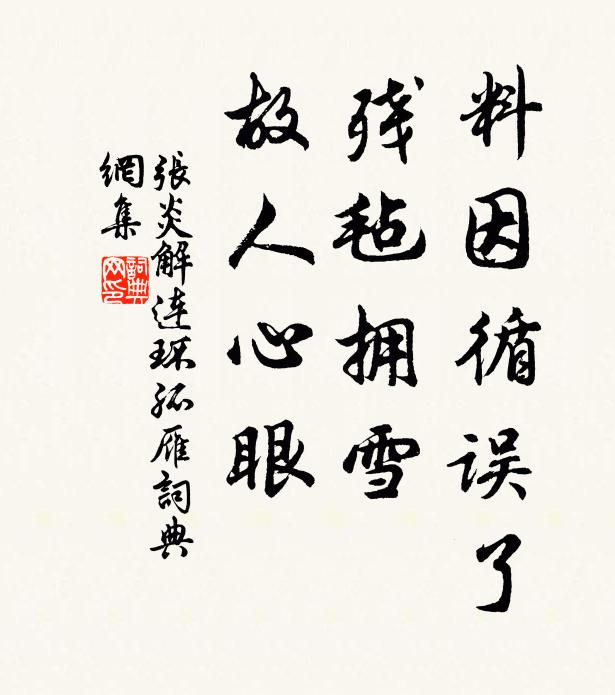 料因循误了
残毡拥雪
故人心眼
張炎解连环孤雁詞典
網集
詞典
网印